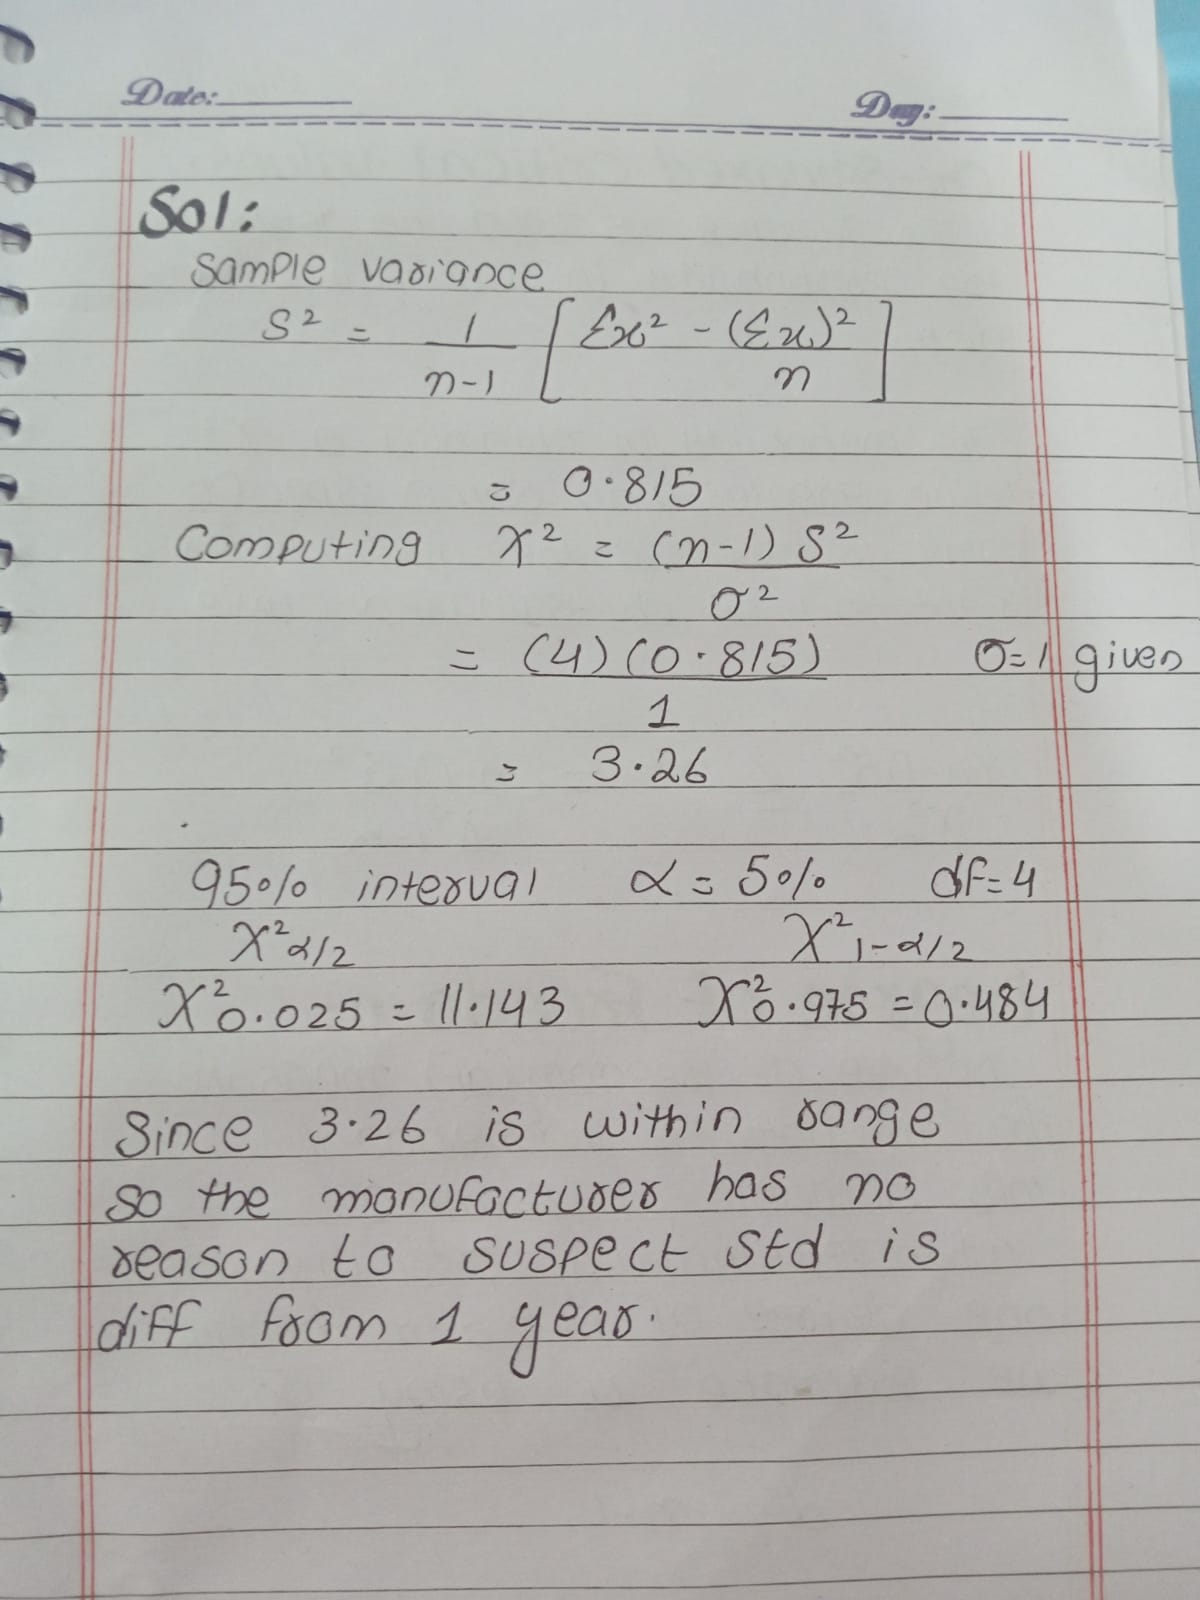 Date:
Day:
Sol:
Sample variance
S² = 1/(n-1) [Σx² - (Σx)²/n]
= 0.815
Computing χ² = (n-1) S²/σ²
= (4)(0.815)/1 σ=1 given
= 3.26
95% interval α = 5% df=4
χ²α/2 χ²1-α/2
χ²0.025 = 11.143 χ²0.975 = 0.484
Since 3.26 is within range
so the manufacturer has no
reason to suspect std is
diff from 1 year.